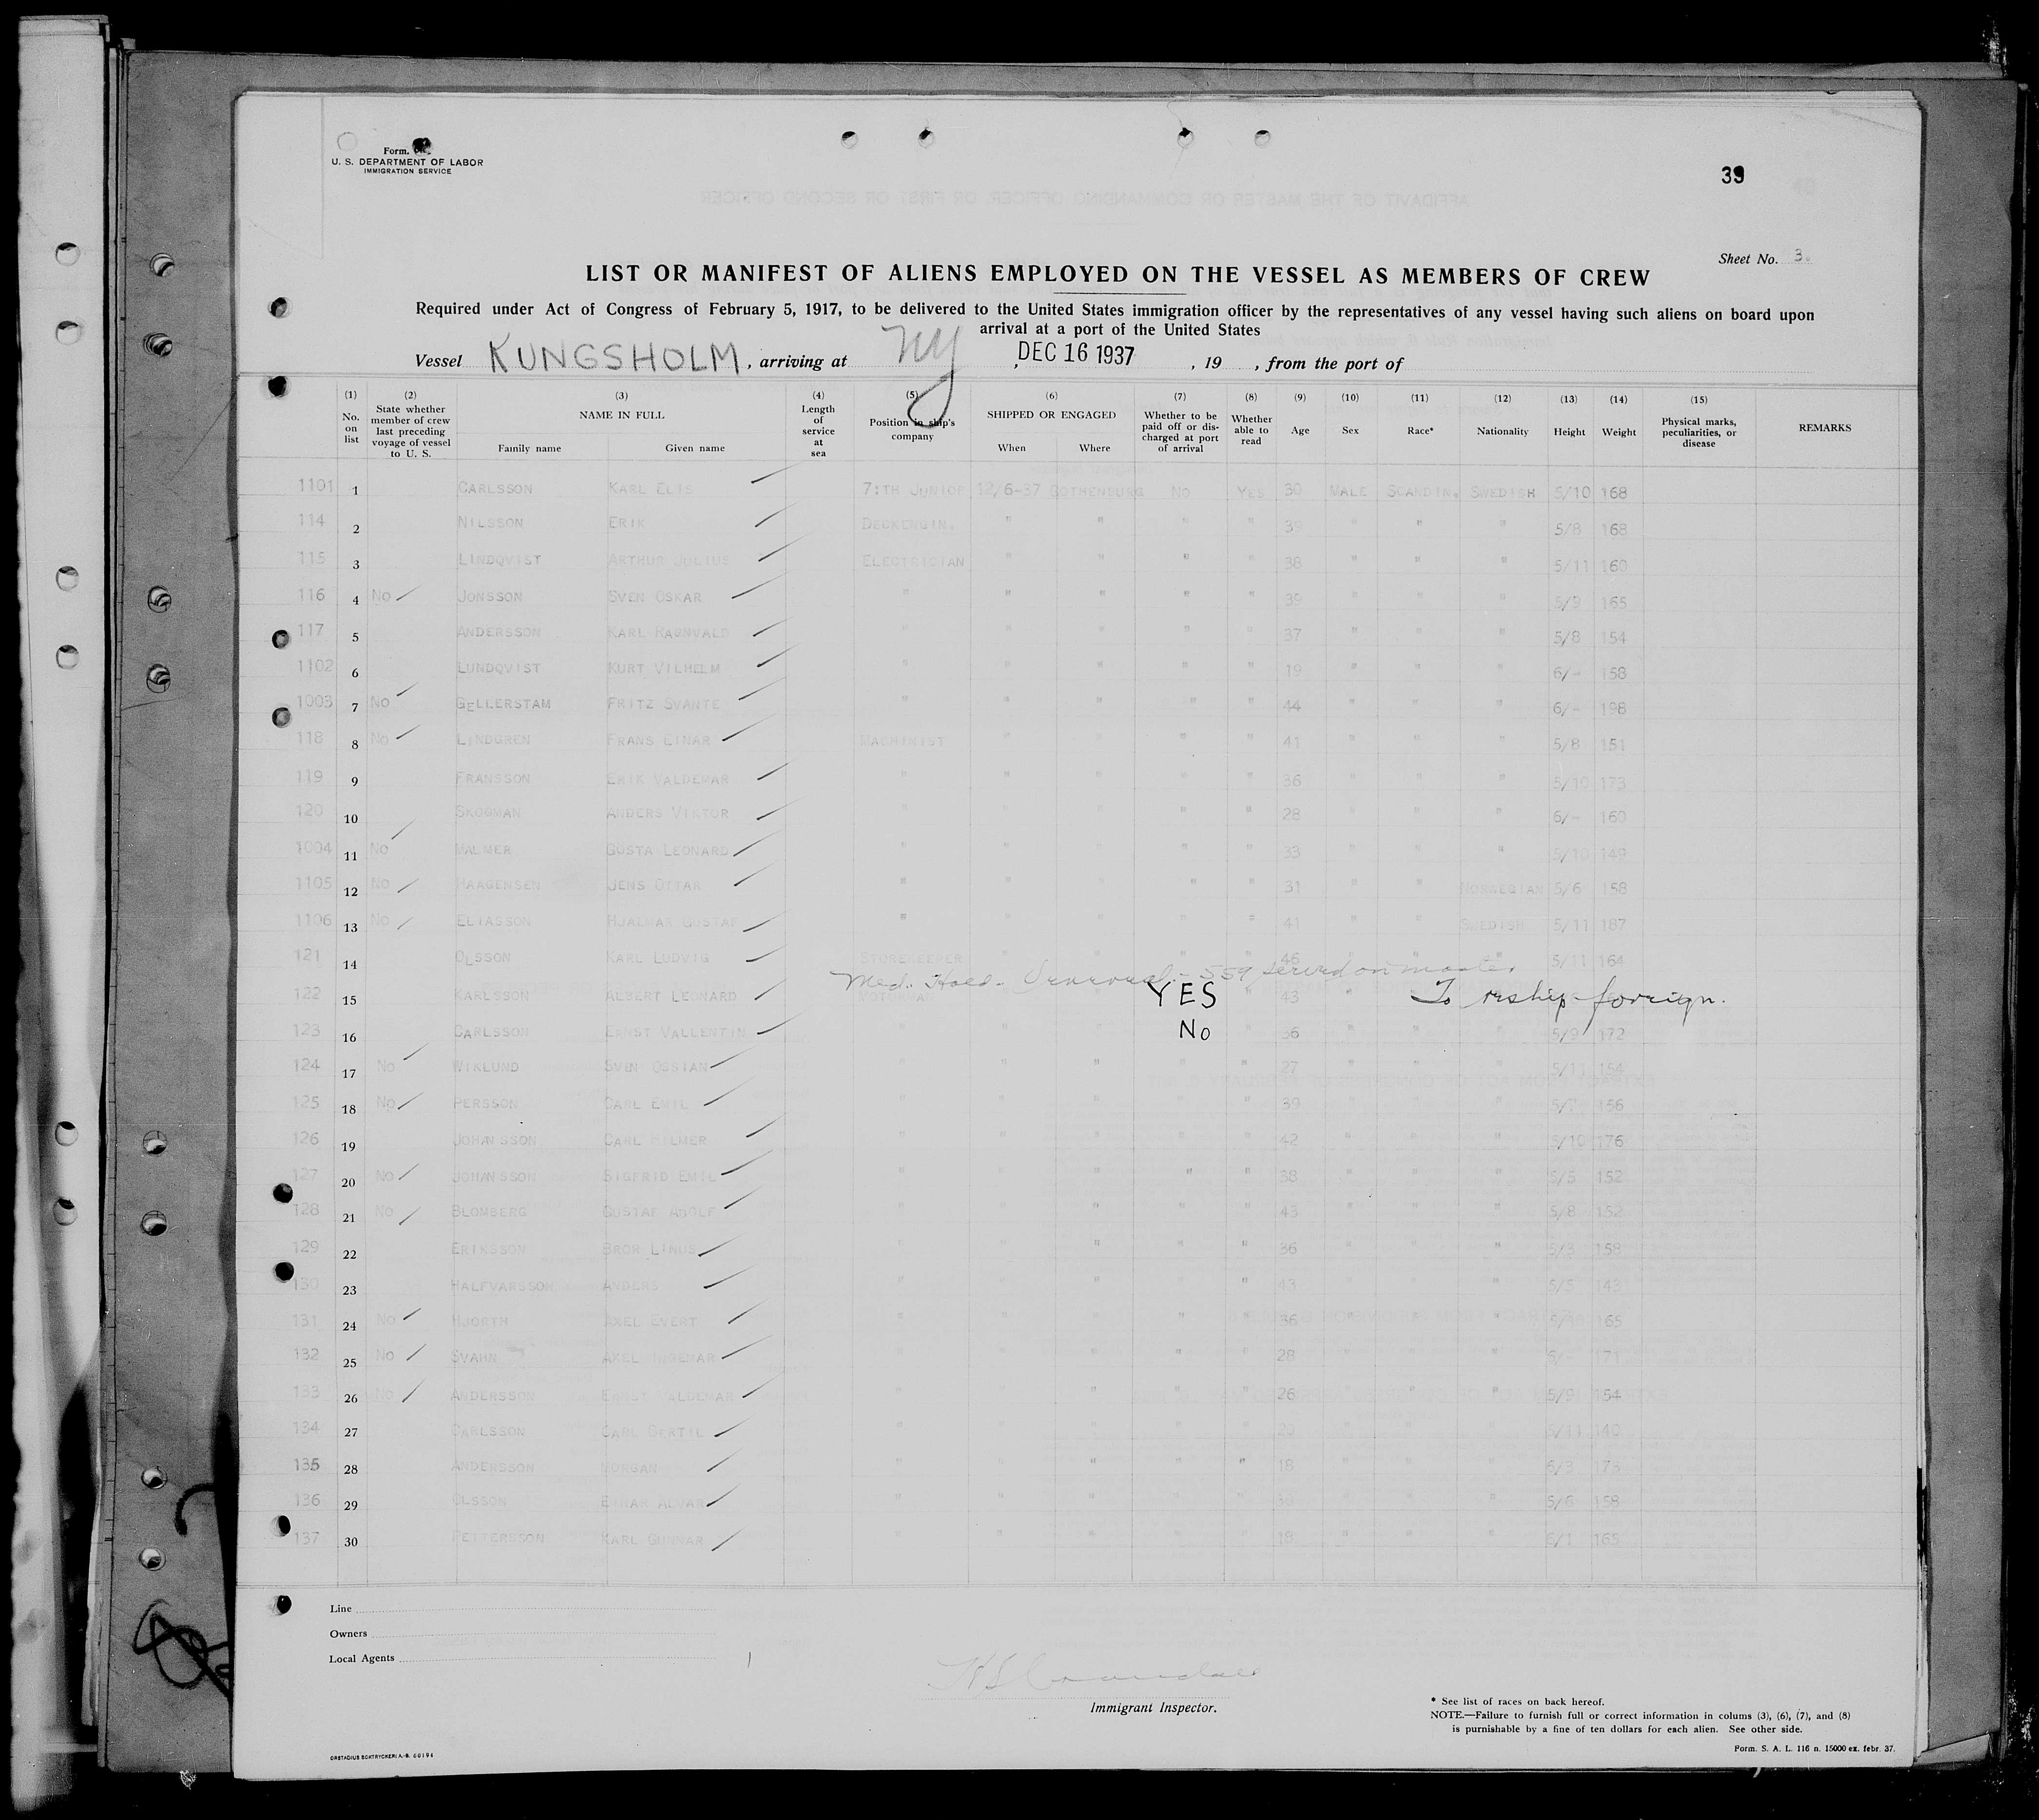 Form.
U. S. DEPARTMENT OF LABOR
IMMIGRATION SERVICE
39
Sheet No. 3.
LIST OR MANIFEST OF ALIENS EMPLOYED ON THE VESSEL AS MEMBERS OF CREW
Required under Act of Congress of February 5, 1917, to be delivered to the United States immigration officer by the representatives of any vessel having such aliens on board upon
arrival at a port of the United States
Vessel KUNGSHOLM, arriving at NY, DEC 16 1937, 19 , from the port of
(1) No. on list (2) State whether member of crew last preceding voyage of vessel to U. S. (3) NAME IN FULL Family name Given name (4) Length of service at sea (5) Position in ship's company (6) SHIPPED OR ENGAGED When Where (7) Whether to be paid off or discharged at port of arrival (8) Whether able to read (9) Age (10) Sex (11) Race* (12) Nationality (13) Height (14) Weight (15) Physical marks, peculiarities, or disease REMARKS
1101 1 CARLSSON KARL ELIS 7:TH JUNIOR 12/6-37 GOTHENBURG NO YES 30 MALE SCANDIN. SWEDISH 5/10 168
114 2 NILSSON ERIK DECKENGIN. " " " " 39 " " " 5/8 168
115 3 LINDQVIST ARTHUR JULIUS ELECTRICIAN " " " " 38 " " " 5/11 160
116 4 NO JONSSON SVEN OSKAR " " " " " 39 " " " 5/9 165
117 5 ANDERSSON KARL RAGNVALD " " " " " 37 " " " 5/8 154
1102 6 LUNDQVIST KURT VILHELM " " " " " 19 " " " 6/- 158
1003 7 NO GELLERSTAM FRITZ SVANTE " " " " " 44 " " " 6/- 198
118 8 NO LINDGREN FRANS EINAR MACHINIST " " " " 41 " " " 5/8 151
119 9 FRANSSON ERIK VALDEMAR " " " " " 36 " " " 5/10 173
120 10 SKOGMAN ANDERS VIKTOR " " " " " 28 " " " 6/- 160
1004 11 NO MALMER GUSTA LEONARD " " " " " 33 " " " 5/10 149
1105 12 NO HAAGENSEN JENS OTTAR " " " " " 31 " " NORWEGIAN 5/6 158
1106 13 NO ELIASSON HJALMAR GUSTAF " " " " " 41 " " SWEDISH 5/11 187
121 14 OLSSON KARL LUDVIG STOREKEEPER " " " " 46 " " " 5/11 164
Med. Hold - 559 served on master
122 15 KARLSSON ALBERT LEONARD YES 43 To reship foreign.
123 16 CARLSSON ERNST VALLENTIN " " " No " 36 " " " 5/9 172
124 17 NO WIKLUND SVEN OSSIAN " " " " " 27 " " " 5/11 154
125 18 NO PERSSON CARL EMIL " " " " " 39 " " " 156
126 19 JOHANSSON CARL HILMER " " " " " 42 " " " 5/10 176
127 20 NO JOHANSSON SIGFRID EMIL " " " " " 38 " " " 5/5 152
128 21 NO BLOMBERG GUSTAF ADOLF " " " " " 43 " " " 5/8 152
129 22 ERIKSSON BROR LINUS " " " " 36 " " 5/3 158
130 23 HALFVARSSON ANDERS " " " " " 43 " " " 5/5 143
131 24 NO HJORTH AXEL EVERT " " " " " 36 " " " 5/10 165
132 25 NO SVAHN AXEL INGEMAR " " " " " 28 " " " 171
133 26 NO ANDERSSON ERNST VALDEMAR " " " " " 26 " " " 5/9 154
134 27 CARLSSON CARL BERTIL " " " " " " " " 5/11 140
135 28 ANDERSSON MORGAN " " " " " 18 " " " 6/3 175
136 29 OLSSON EINAR ALVAR " " " " " " " " 5/6 158
137 30 PETTERSSON KARL GUNNAR " " " " " 18 " " " 6/1 165
Line
Owners
Local Agents
Immigrant Inspector.
* See list of races on back hereof.
NOTE.—Failure to furnish full or correct information in colums (3), (6), (7), and (8)
is punishable by a fine of ten dollars for each alien. See other side.
ORSTADIUS BOKTRYCKERI A.-B. 60194
Form. S. A. L. 116 n. 15000 ex. febr. 37.